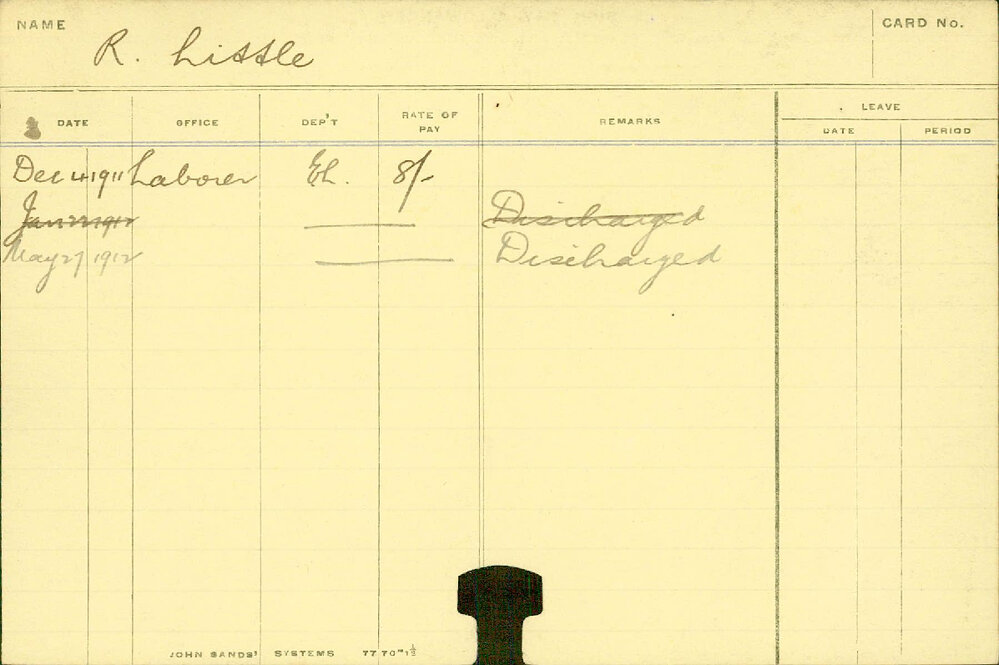 NAME
CARD No.
R. Little
DATE OFFICE DEP'T RATE OF PAY REMARKS LEAVE
DATE PERIOD
Dec 4 1911 Laborer El. 8/-
Jan 22 1912 Discharged
May 27 1912 Discharged
JOHN SANDS' SYSTEMS 7770